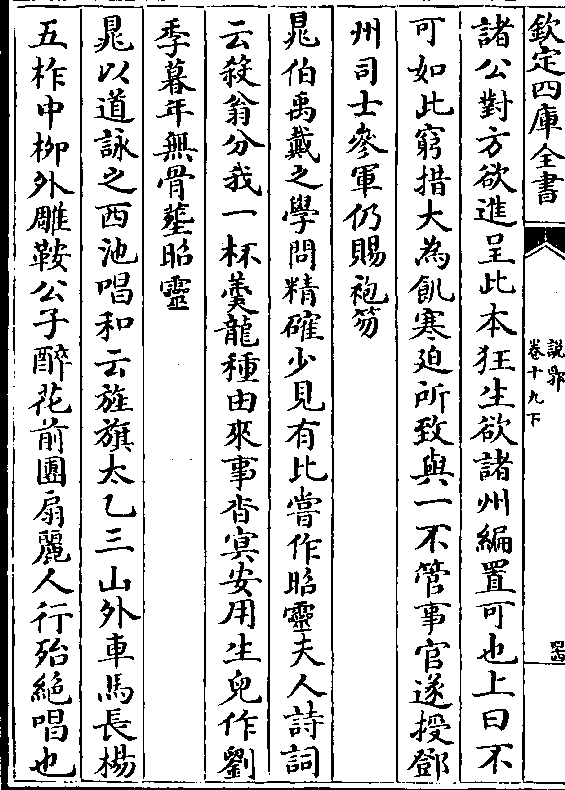 欽定四庫全書
說郛
卷十九下
諸公對方欲進呈此本狂生欲諸州編置可也上曰不
可如此窮措大為飢寒迫所致與一不管事官遂授鄧
州司士參軍仍賜袍笏
晁伯禹戴之學問精確少見有比嘗作昭靈夫人詩詞
云殺翁分我一杯羮龍種由來事杳㝠安用生兒作劉
季暮年無骨塟昭靈
晁以道詠之西池唱和云旌旗太乙三山外車馬長楊
五柞中栁外雕鞍公子醉花前團扇麗人行殆絶唱也